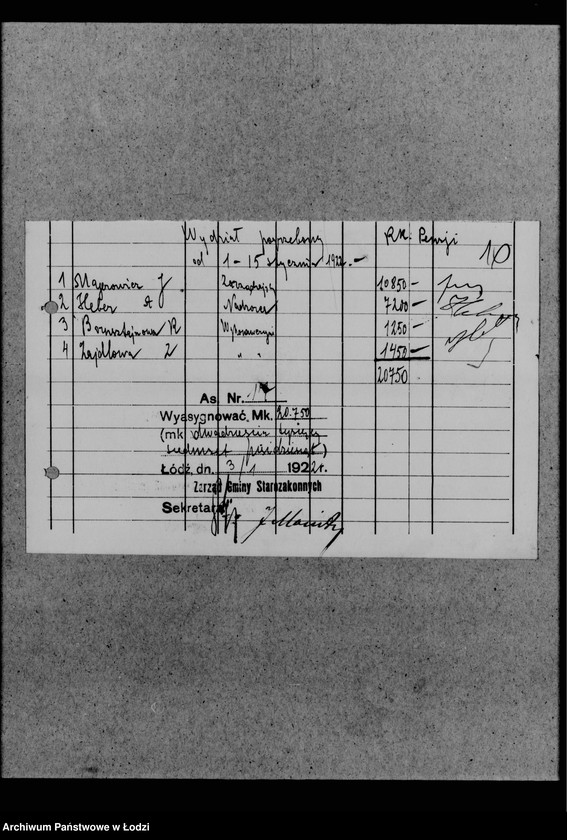 Wydział pogrzebowy RK: Pensji 10
od 1 - 15 stycznia 1922.-
1 Majerowicz J. Zarządzający 10850 -
2 Heber A Nadzorca 7200 -
3 Bornsztajnowa R 1250 -
4 Zajdlowa Z " " 1450 -
20750
As. Nr.
Wyasygnować Mk. 20.750
(mk dwadzieścia tysięcy
siedmset pięćdziesiąt)
Łódź, dn. 3/1 1922 r.
Zarząd Gminy Starozakonnych
Sekretarz
Archiwum Państwowe w Łodzi